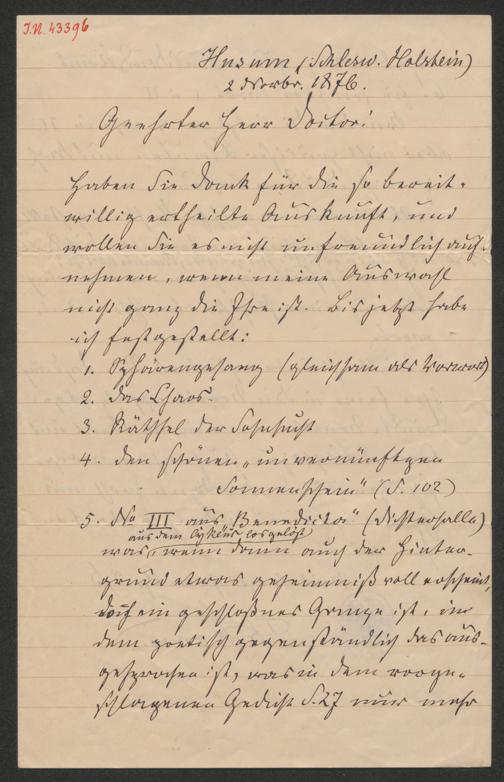 I.N. 43396
Husum (Schlesw. Holstein)
2 Novbr. 1876.
Geehrter Herr Doctor!
Haben Sie Dank für die so bereit-
willig ertheilte Auskunft, und
wollen Sie es nicht unfreundlich auf-
nehmen, wenn meine Auswahl
nicht ganz die Ihre ist. Bis jetzt habe
ich festgestellt:
1. Sphärengesang (gleichsam als Vorwort)
2. Das Chaos.
3. Räthsel der Sehnsucht
4. Den schönen „unvernünftgen
Sonnenschein" (S. 102)
5. No III aus „Benedicta" (Dichterhalle)
aus dem Cyklus losgelöst
was, wenn dann auch der Hinter-
grund etwas geheimnißvoll erscheint,
doch ein geschloßnes Ganze ist, in
dem poetisch gegenständlich das aus-
gesprochen ist, was in dem vorge-
schlagenen Gedicht S. 27 nur mehr